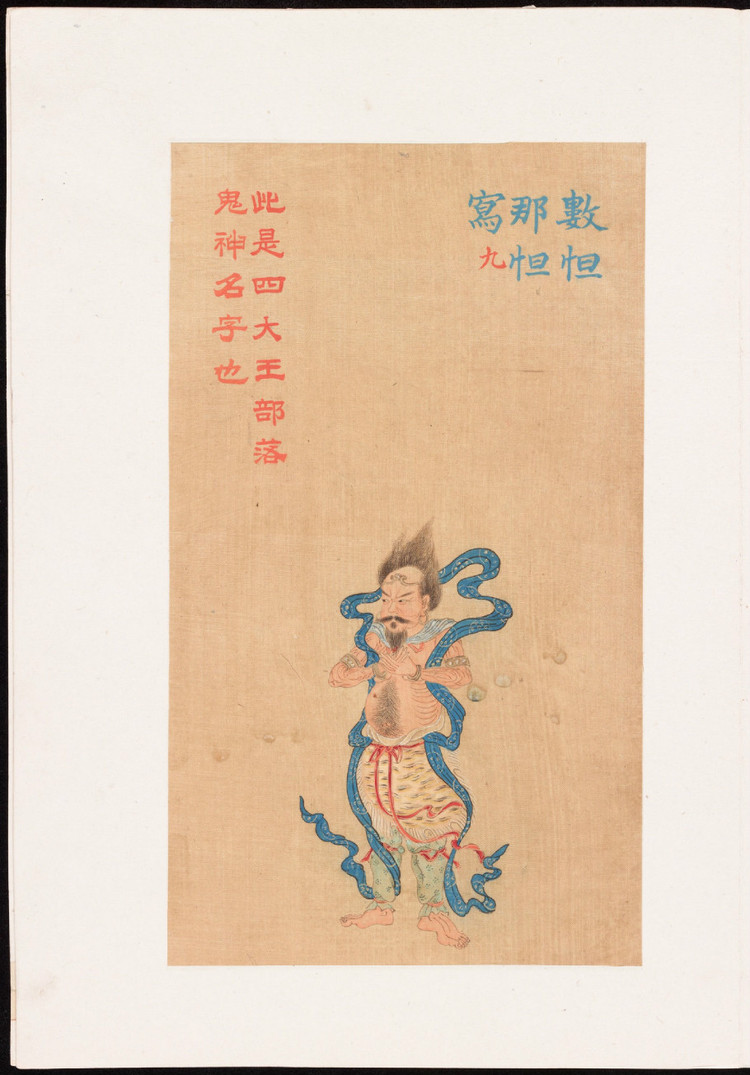 數怛
那怛
寫九
此是四大王部落
鬼神名字也